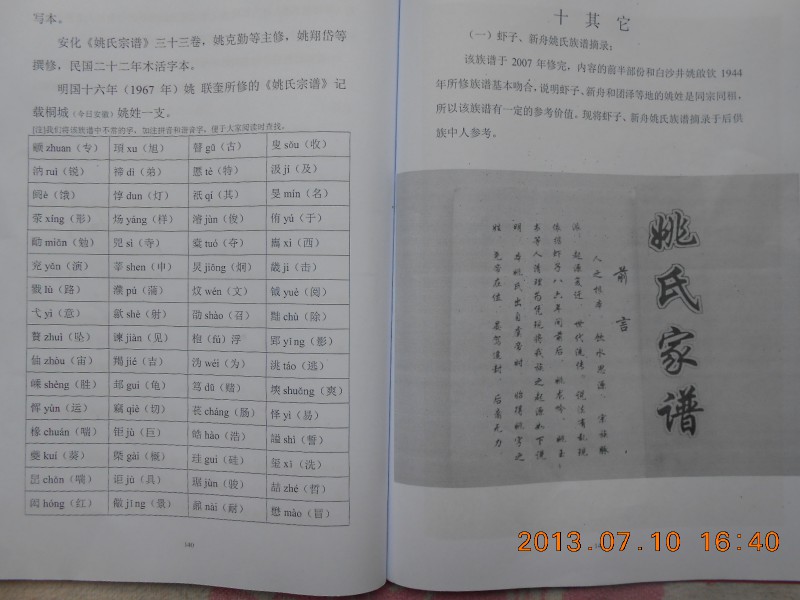 写本。
安化《姚氏宗谱》三十三卷,姚克勤等主修,姚翔岱等
撰修,民国二十二年木活字本。
明国十六年(1967 年)姚 联奎所修的《姚氏宗谱》记
载桐城(今日安徽)姚姓一支。
[注]我们将该族谱中不常的字,加注拼音和谐音字,便于大家阅读时查找。
颛 zhuan(专) 顼 xu(旭) 瞽 gǔ(古) 叟 sǒu(收)
汭 ruì(锐) 禘 dì(弟) 慝 tè(特) 汲 jí(及)
(饿) 惇 dun(灯) 祇 qí(其) 旻 mín(名)
荥 xíng(形) 炀 yáng(样) 濬 jùn(俊) 侑 yù(于)
勔 miǒn(勉) 兕 sì(寺) 橐 tuó(夺) 巂 xī(西)
兖 yǒn(演) 莘 shen(申) 炅 jiǒng(炯) (击)
戳 lù(路) 濮 pú(蒲) 炆 wén(文) 钺 yuè(阅)
弋 yì(意) 歙 shé(射) 劭 shào(召) 黜 chù(除)
赘 zhuì(坠) 谏 jiàn(见) 桴(fú)浮 郢 yǐng(影)
(宙) 羯 jié(吉) 沩 wéi(为) 洮 táo(逃)
嵊 shèng(胜) 邽 guī(龟) 笃 dǔ(赌) 塽 shuǒng(爽)
恽 yùn(运) 竊 qiè(切) 苌 cháng(肠) 怿 yì(易)
椽 chuán(喘) 钜 jù(巨) 皓 hào(浩) 謚 shì(誓)
夔 kuí(葵) (慨) 珪 guī(硅) 玺 xǐ(洗)
(喘) 讵 jù(具) 琚 jùn(骏) 喆 zhé(哲)
闳 hóng(红) 儆 jǐng(景) 鼐 nài(鼐) 懋 mào(冒)
140
十 其 它
(一)虾子、新舟姚氏族谱摘录:
该族谱于 2007 年修完,内容的前半部份和白沙井姚啟钦 1944
年所修族谱基本吻合,说明虾子、新舟和团泽等地的姚姓是同宗同祖,
所以该族谱有一定的参考价值。现将虾子、新舟姚氏族谱摘录于后供
族中人参考。
姚氏家谱
前言
人之根本,饮水思源,宗族脉
派,起源复迁,世代流传,说法有乱现
2013.07.10 16:40